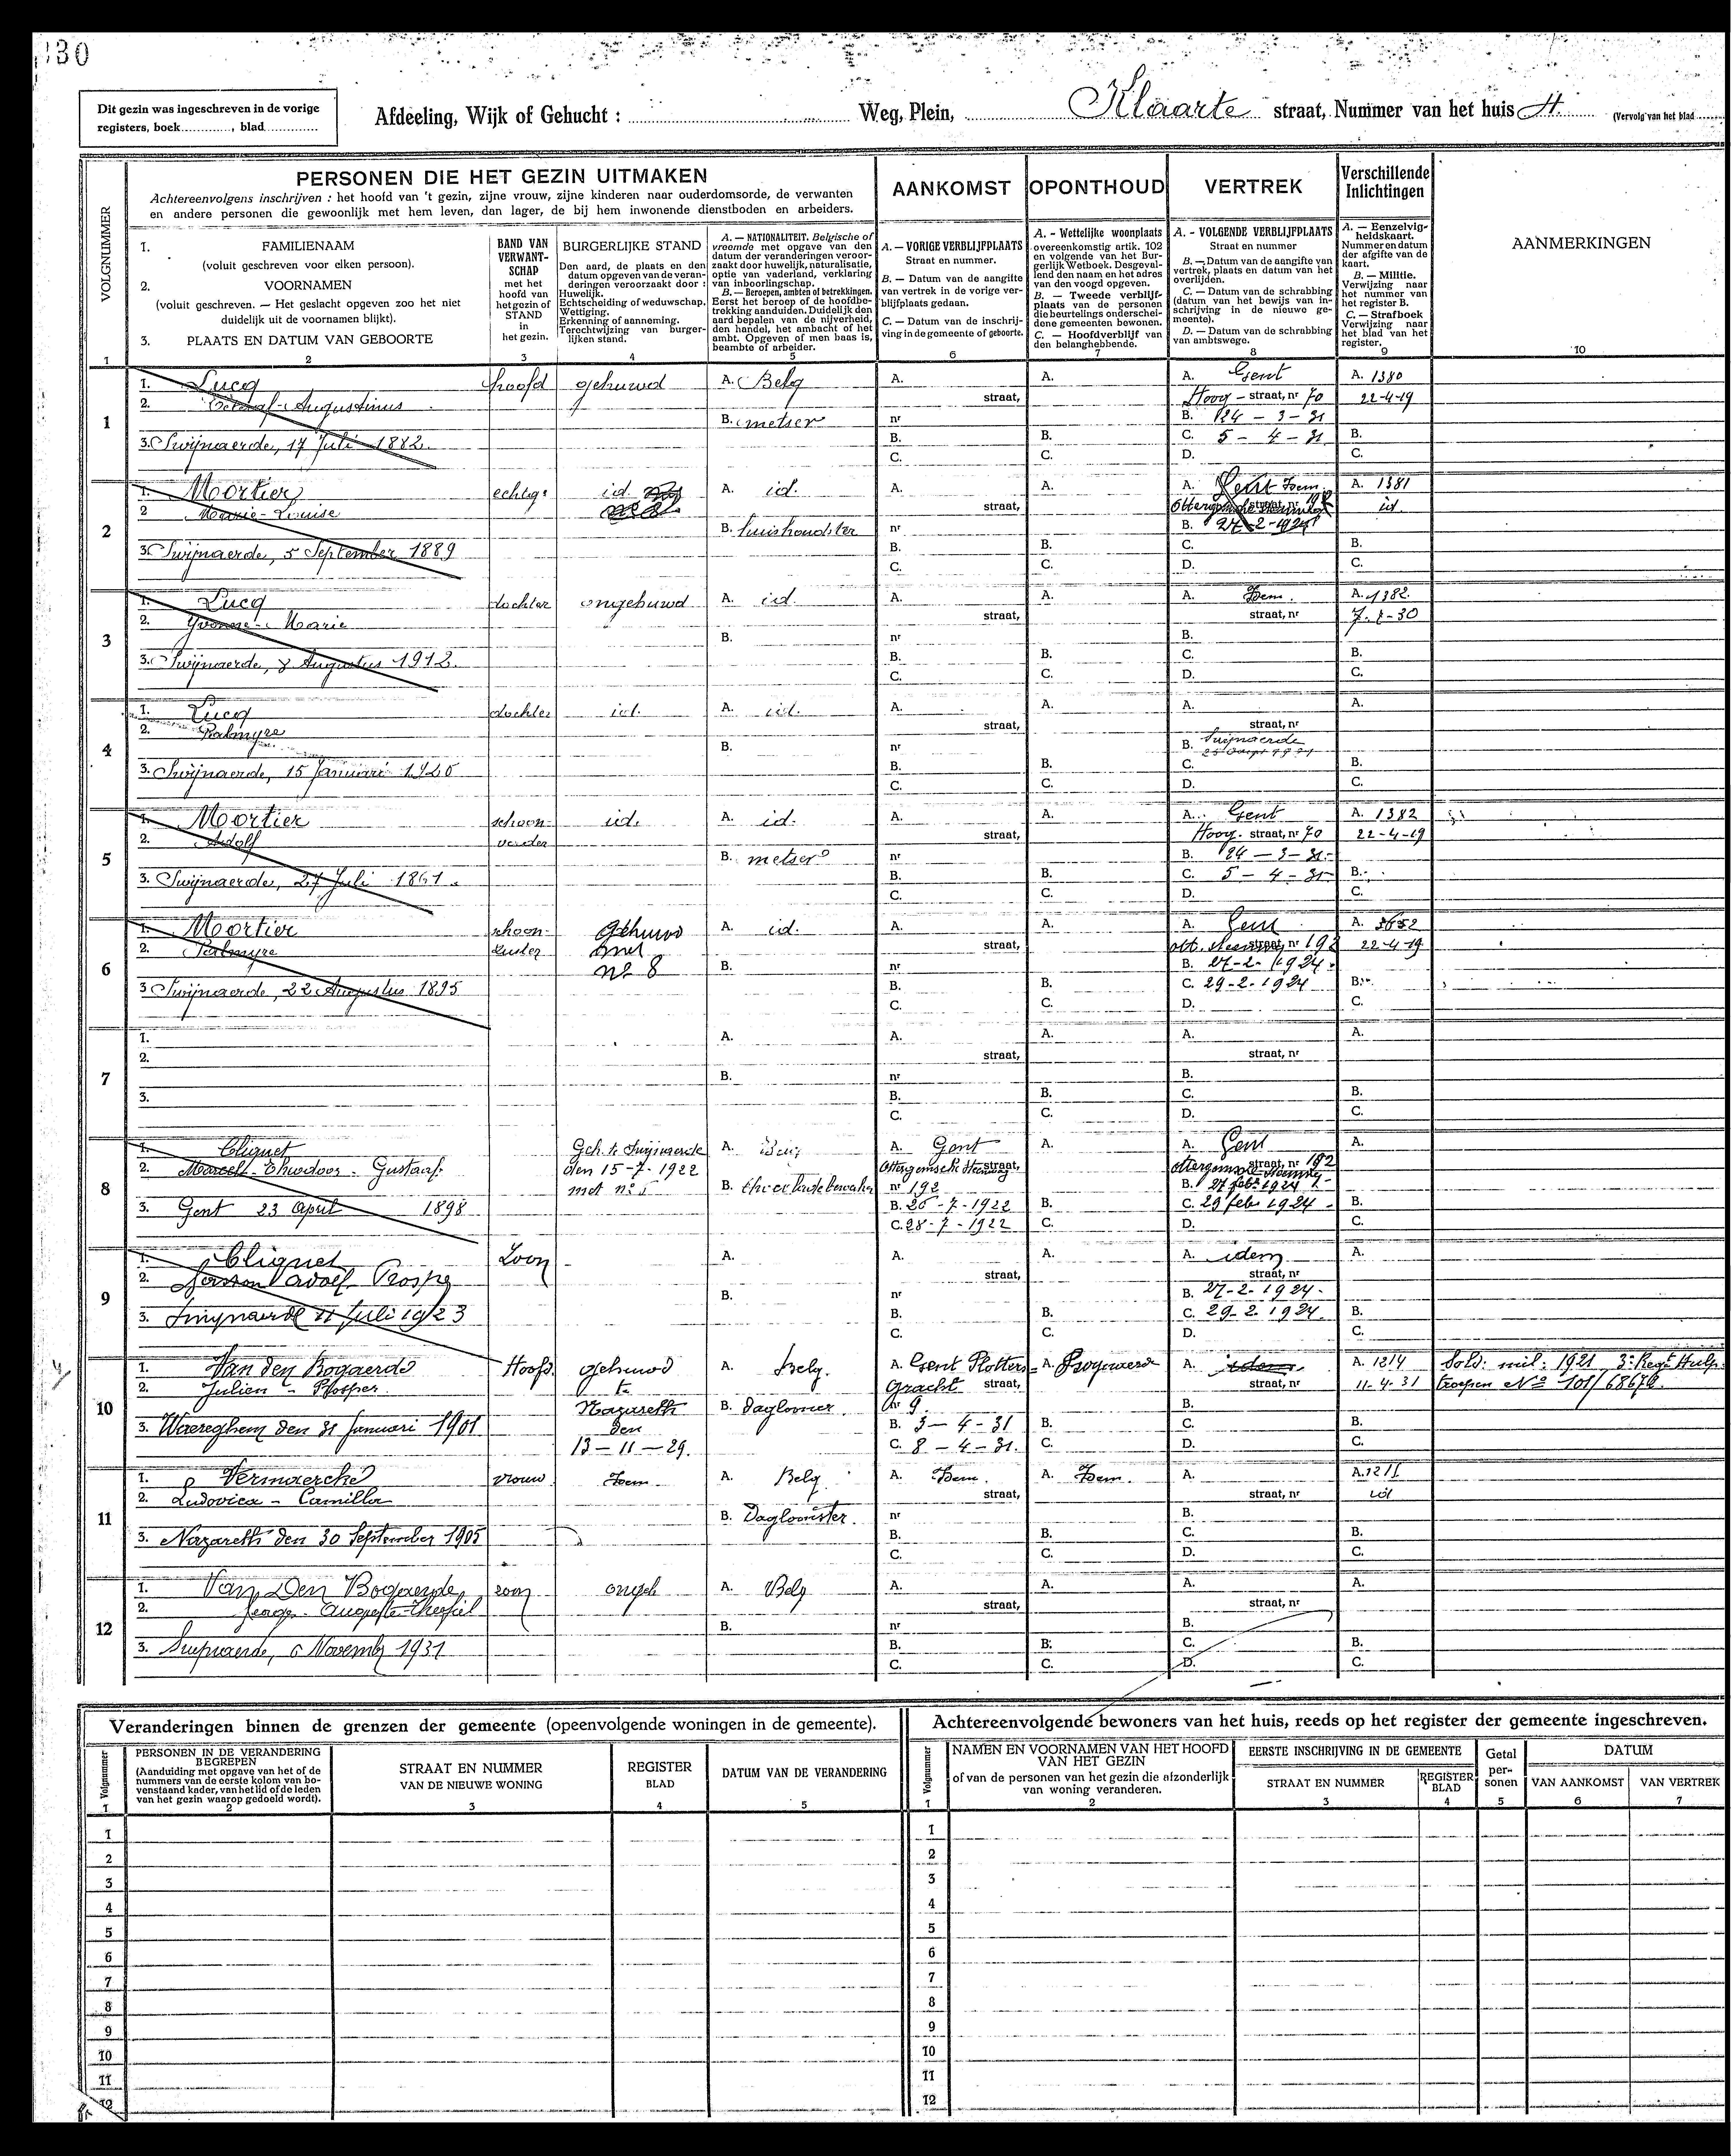 130
Dit gezin was ingeschreven in de vorige
registers, boek ............, blad ............
Afdeeling, Wijk of Gehucht : ............ Weg, Plein, ............ Klaarte straat, Nummer van het huis H. (Vervolg van het blad
VOLGNUMMER
PERSONEN DIE HET GEZIN UITMAKEN
Achtereenvolgens inschrijven : het hoofd van 't gezin, zijne vrouw, zijne kinderen naar ouderdomsorde, de verwanten
en andere personen die gewoonlijk met hem leven, dan lager, de bij hem inwonende dienstboden en arbeiders.
AANKOMST OPONTHOUD VERTREK
Verschillende
Inlichtingen
1. FAMILIENAAM
(voluit geschreven voor elken persoon).
2. VOORNAMEN
(voluit geschreven. — Het geslacht opgeven zoo het niet
duidelijk uit de voornamen blijkt).
3. PLAATS EN DATUM VAN GEBOORTE
BAND VAN
VERWANT-
SCHAP
met het
hoofd van
het gezin of
STAND
in
het gezin.
BURGERLIJKE STAND
Den aard, de plaats en den
datum opgeven van de veran-
deringen veroorzaakt door :
Huwelijk.
Echtscheiding of weduwschap.
Wettiging.
Erkenning of aanneming.
Terechtwijzing van burger-
lijken stand.
A. — NATIONALITEIT. Belgische of
vreemde met opgave van den
datum der veranderingen veroor-
zaakt door huwelijk, naturalisatie,
optie van vaderland, verklaring
van inboorlingschap.
B. — Beroepen, ambten of betrekkingen.
Eerst het beroep of de hoofdbe-
trekking aanduiden. Duidelijk den
aard bepalen van de nijverheid,
den handel, het ambacht of het
ambt. Opgeven of men baas is,
beambte of arbeider.
A. — VORIGE VERBLIJFPLAATS
Straat en nummer.
B. — Datum van de aangifte
van vertrek in de vorige ver-
blijfplaats gedaan.
C. — Datum van de inschrij-
ving in de gemeente of geboorte.
A. - Wettelijke woonplaats
overeenkomstig artik. 102
en volgende van het Bur-
gerlijk Wetboek. Desgeval-
lend den naam en het adres
van den voogd opgeven.
B. — Tweede verblijf-
plaats van de personen
die beurtelings onderschei-
dene gemeenten bewonen.
C. — Hoofdverblijf van
den belanghebbende.
A. - VOLGENDE VERBLIJFPLAATS
Straat en nummer
B. — Datum van de aangifte van
vertrek, plaats en datum van het
overlijden.
C. — Datum van de schrabbing
(datum van het bewijs van in-
schrijving in de nieuwe ge-
meente).
D. — Datum van de schrabbing
van ambtswege.
A. — Eenzelvig-
heidskaart.
Nummer en datum
der afgifte van de
kaart.
B. — Militie.
Verwijzing naar
het nummer van
het register B.
C. — Strafboek
Verwijzing naar
het blad van het
register.
AANMERKINGEN
1 2 3 4 5 6 7 8 9 10
1
1. Lucq hoofd gehuwd A. Belg A. A. A. Gent A. 1380
2. Augustinus straat, Hoog - straat, nr 70 22-4-19
B. metser nr B. 24 - 3 - 31
3. Swijnaerde, 17 Juli 1882 B. B. C. 5 - 4 - 31 B.
C. C. D. C.
2
1. Mortier echtg. id. A. id. A. A. A. Gent Idem A. 1381
2 Marie-Louise straat, straat, nr 192 id
B. huishoudster nr B. 27-2-1924
3. Swijnaerde, 5 September 1889 B. B. C. B.
C. C. D. C.
3
1. Lucq dochter ongehuwd A. id. A. A. A. Idem. A. 1382
2. Yvonne-Marie straat, straat, nr
B. nr B.
3. Swijnaerde, 8 Augustus 1912. B. B. C. B.
C. C. D. C.
4
1. Lucq dochter id. A. id. A. A. A. A.
2. Palmyre straat, straat, nr
B. nr B. Swijnaerde
3. Swijnaerde, 15 Januari 1920 B. B. C. B.
C. C. D. C.
5
1. Mortier schoon- id. A. id. A. A. A. Gent A. 1382
2. Adolf vader straat, Hoog. straat, nr 70 22-4-19
B. metser nr B. 24 - 3 - 31
3. Swijnaerde, 27 Juli 1861. B. B. C. 5 - 4 - 31 B.
C. C. D. C.
6
1. Mortier schoon- Gehuwd A. id. A. A. A. Gent A. 3652
2. Palmyre zuster met straat, straat, nr 192 22-4-19
N° 8 B. nr B. 27-2-1924
3. Swijnaerde, 22 Augustus 1895 B. B. C. 29-2-1924 B.
C. C. D. C.
7
1. A. A. A. A. A.
2. straat, straat, nr
B. nr B.
3. B. B. C. B.
C. C. D. C.
8
1. Cliquet Geh. te Swijnaerde A. Belg A. Gent A. A. Gent A.
2. Marcell - Theodoor - Gustaaf. den 15-7-1922 Ottergemsche Steenweg straat, Ottergemsche Steenweg straat, nr 192
met n° B. nr 192 B. 27 feb. 1924
3. Gent 23 April 1898 B. 26-7-1922 B. C. 29 feb. 1924 B.
C. 28-7-1922 C. D. C.
9
1. Cliquet Zoon A. A. A. A. idem A.
2. Adolf Prosper straat, straat, nr
B. nr B. 27-2-1924.
3. Swijnaerde 11 Juli 1923 B. B. C. 29-2-1924. B.
C. C. D. C.
10
1. Van den Bogaerde Hoofd. gehuwd A. Belg. A. Gent Plotters- A. A. idem A. 1214 Sold. mil. 1921 3e Regt Hulp-
2. Julien - Prosper. te gracht straat, straat, nr 11-4-31 troepen N° 101/68676.
Nazareth B. Daglooner. nr 9. B.
3. Waereghem den 31 Januari 1901 den B. 3 - 4 - 31 B. C. B.
13 - 11 - 29. C. 8 - 4 - 31. C. D. C.
11
1. Vermaercke vrouw Idem A. Belg A. Idem. A. Idem. A. A. 1215
2. Ludovica - Camilla straat, straat, nr id
B. Dagloonster. nr B.
3. Nazareth den 30 September 1905 B. B. C. B.
C. C. D. C.
12
1. Van Den Bogaerde zoon ongeh A. Belg A. A. A. A.
2. straat, straat, nr
B. nr B.
3. Swijnaerde, 6 November 1931 B. B. C. B.
C. C. D. C.
Veranderingen binnen de grenzen der gemeente (opeenvolgende woningen in de gemeente).
Volgnummer
PERSONEN IN DE VERANDERING
BEGREPEN
(Aanduiding met opgave van het of de
nummers van de eerste kolom van bo-
venstaand kader, van het lid of de leden
van het gezin waarop gedoeld wordt).
STRAAT EN NUMMER
VAN DE NIEUWE WONING
REGISTER
BLAD
DATUM VAN DE VERANDERING
1 2 3 4 5
1
2
3
4
5
6
7
8
9
10
11
12
Achtereenvolgende bewoners van het huis, reeds op het register der gemeente ingeschreven.
Volgnummer
NAMEN EN VOORNAMEN VAN HET HOOFD
VAN HET GEZIN
of van de personen van het gezin die afzonderlijk
van woning veranderen.
EERSTE INSCHRIJVING IN DE GEMEENTE
STRAAT EN NUMMER
REGISTER
BLAD
Getal
per-
sonen
DATUM
VAN AANKOMST VAN VERTREK
1 2 3 4 5 6 7
1
2
3
4
5
6
7
8
9
10
11
12